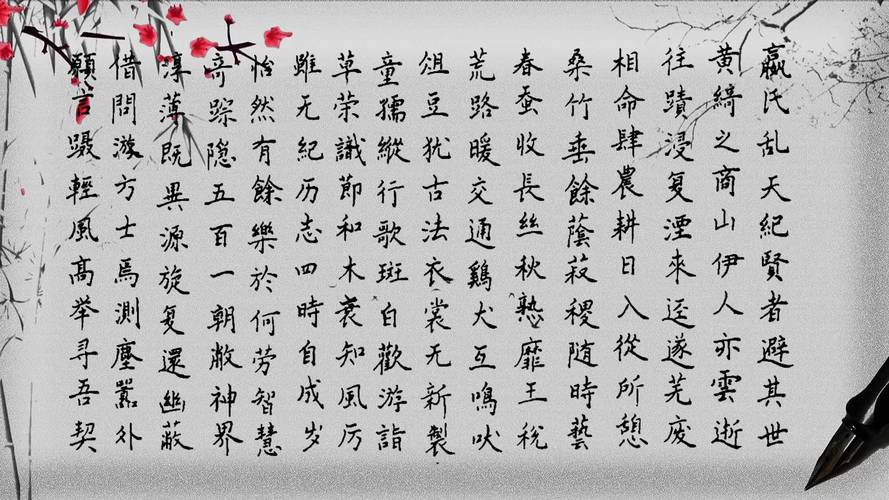 嬴氏乱天紀賢者避其世
黄綺之商山伊人亦雲逝
往蹟浸复湮來逕遂芜废
相命肆農耕日入從所憩
桑竹垂餘蔭菽稷随時藝
春蚕收長絲秋熟靡王税
荒路暧交通鷄犬互鳴吠
俎豆犹古法衣裳无新製
童孺縱行歌斑白歡游詣
草荣識節和木衰知風厉
雖无紀历志四時自成岁
怡然有餘樂於何劳智慧
奇踪隐五百一朝敞神界
淳薄既異源旋复還幽蔽
借問游方士焉測塵嚣外
願言蹑輕風高举寻吾契